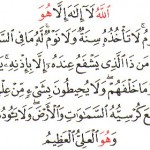 اللَّهُ لَا إِلَٰهَ إِلَّا هُوَ
لَا تَأْخُذُهُ سِنَةٌ وَلَا نَوْمٌ لَهُ مَا فِي
مَنْ ذَا الَّذِي يَشْفَعُ عِنْدَهُ إِلَّا بِإِذْنِهِ
مَا خَلْفَهُمْ وَلَا يُحِيطُونَ
كُرْسِيُّهُ السَّمَٰوَاتِ وَالْأَرْضَ وَلَا
وَهُوَ الْعَلِيُّ الْعَظِيمُ